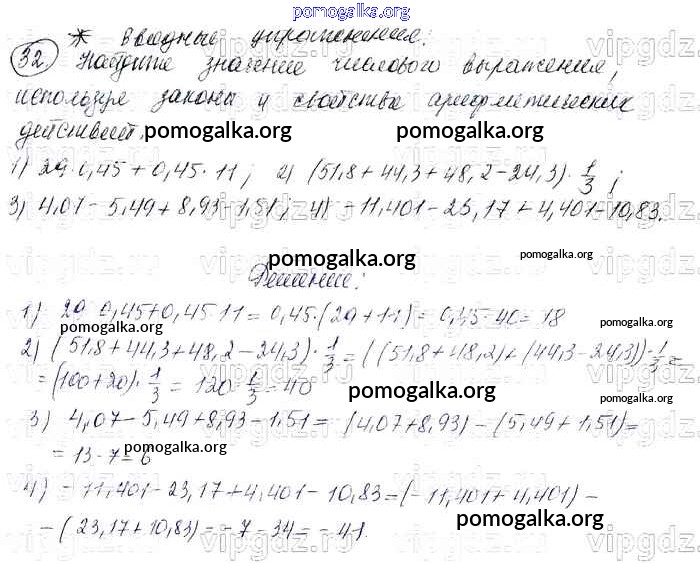 pomogalka.org
* Вводные упражнения:
32. Найдите значение числового выражения,
используя законы и свойства арифметических
действий.
pomogalka.org pomogalka.org
1) 29·0,45 + 0,45·11; 2) (51,8+44,3+48,2-24,3)·1/3;
3) 4,07-5,49+8,93-1,51; 4) -11,401-23,17+4,401-10,83.
pomogalka.org pomogalka.org
Решение:
1) 29·0,45+0,45·11=0,45·(29+11)=0,45·40=18
pomogalka.org pomogalka.org
2) (51,8+44,3+48,2-24,3)·1/3=((51,8+48,2)+(44,3-24,3))·1/3=
=(100+20)·1/3=120·1/3=40
pomogalka.org pomogalka.org
3) 4,07-5,49+8,93-1,51=(4,07+8,93)-(5,49+1,51)=
=13-7=6
pomogalka.org
4) -11,401-23,17+4,401-10,83=(-11,401+4,401)-
-(23,17+10,83)=-7-34=-41.
pomogalka.org
pomogalka.org